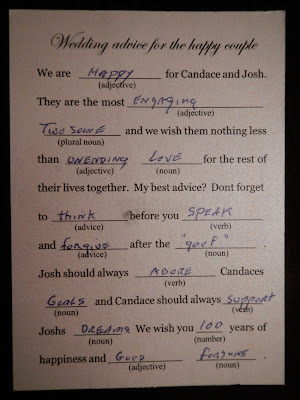 Wedding advice for the happy couple
We are HAPPY for Candace and Josh.
(adjective)
They are the most ENGAGING
(adjective)
TWOSOME and we wish them nothing less
(plural noun)
than UNENDING LOVE for the rest of
(adjective) (noun)
their lives together. My best advice? Dont forget
to think before you SPEAK
(advice) (verb)
and forgive after the "goof".
(advice) (noun)
Josh should always ADORE Candaces
(verb)
GOALS and Candace should always support
(noun) (verb)
Joshs DREAMS We wish you 100 years of
(noun) (number)
happiness and GOOD fortune.
(adjective) (noun)